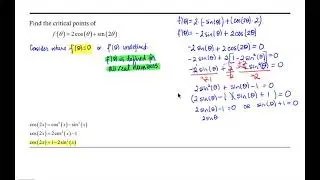 Find the critical points of
f(θ) = 2cos(θ) + sin(2θ)
Consider where f'(θ)=0 or f'(θ) undefined.
f'(θ) is defined for
all real numbers.
cos(2x) = cos²(x) − sin²(x)
cos(2x) = 2cos²(x) − 1
cos(2x) = 1 − 2sin²(x)
f'(θ) = 2·(−sin(θ)) + (cos(2θ)·2)
f'(θ) = −2sin(θ) + 2cos(2θ)
−2sin(θ) + 2cos(2θ) = 0
−2sin(θ) + 2[1 − 2sin²(θ)] = 0
2sin²(θ) + sin(θ) − 1 = 0
(2sin(θ) − 1)(sin(θ) + 1) = 0
2sin(θ) − 1 = 0 or sin(θ) + 1 = 0
2sinθ